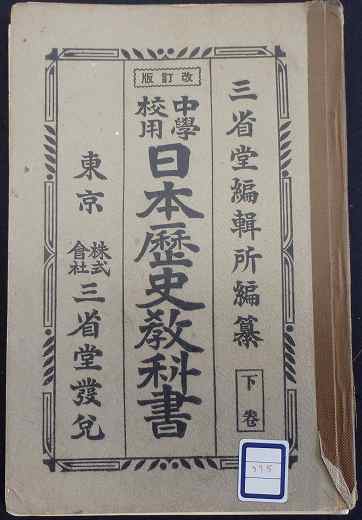 三省堂編輯所編纂
下卷
改訂版
中學校用
日本歷史敎科書
東京
株式會社
三省堂發兌